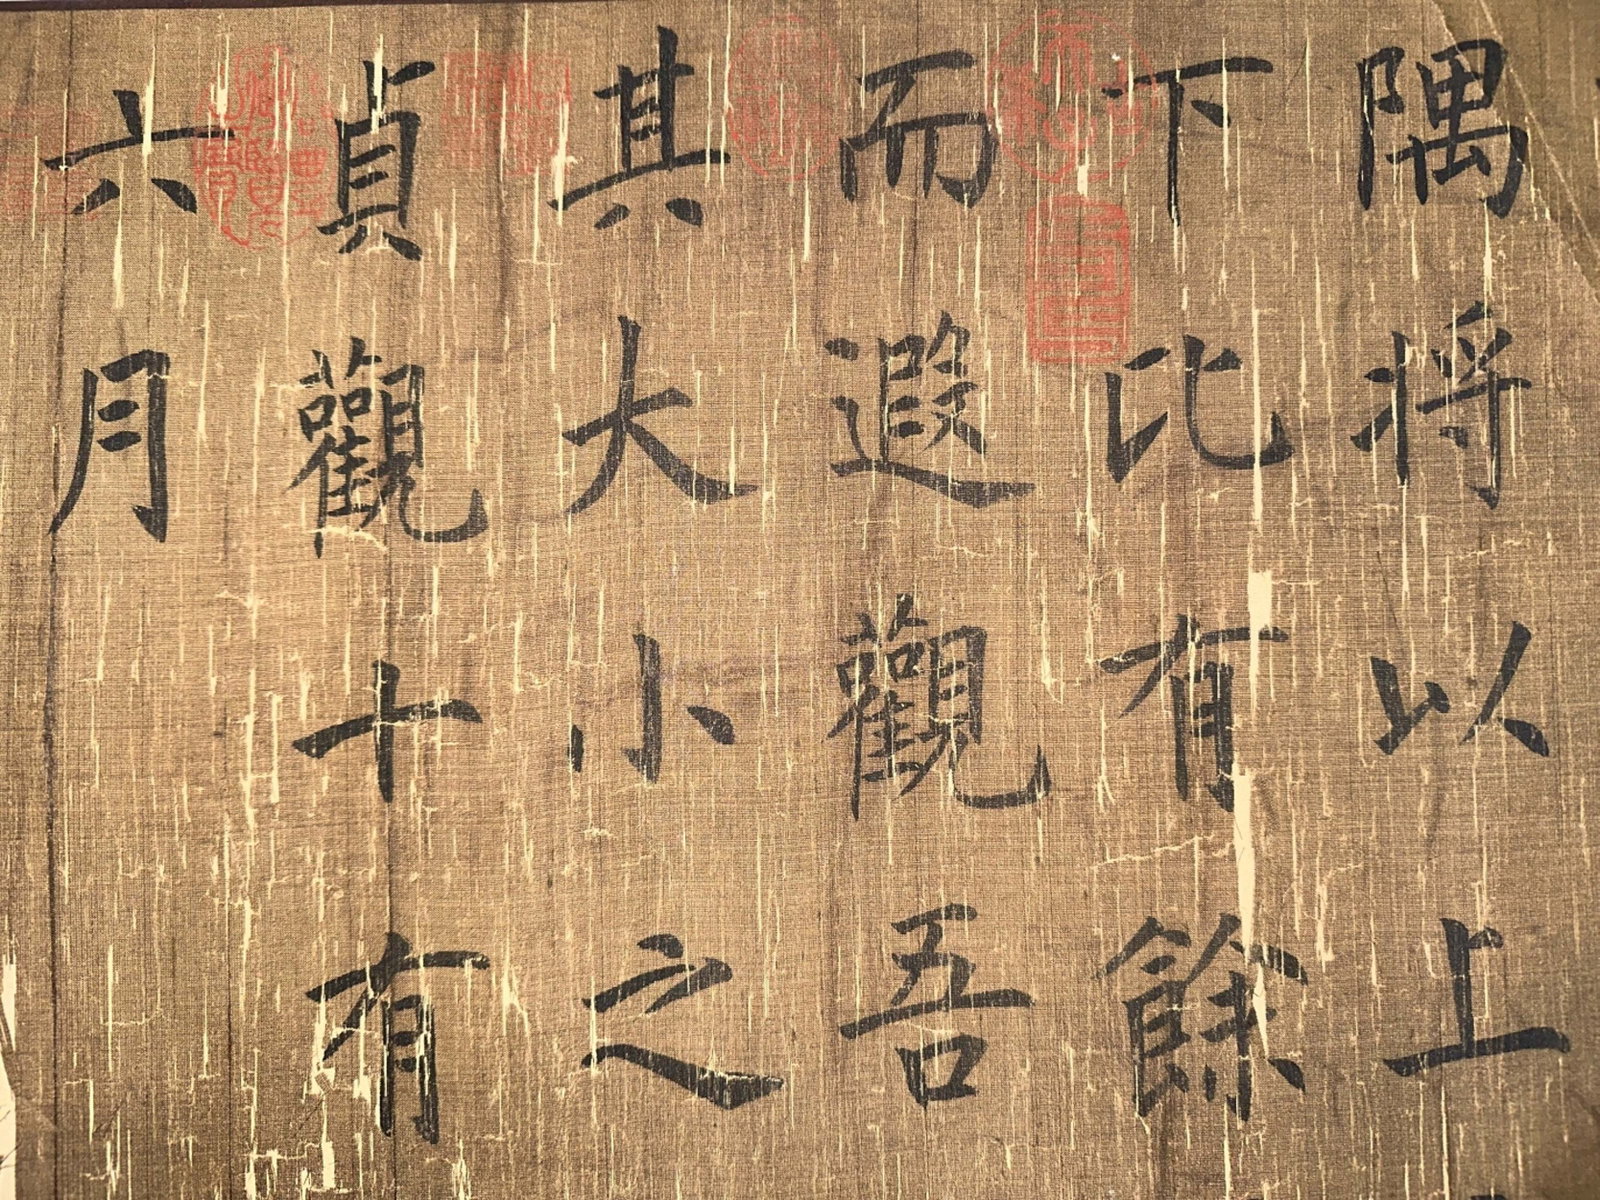 隅将以上
下比有餘
而遐觀吾
其大小之
貞觀十有
六月